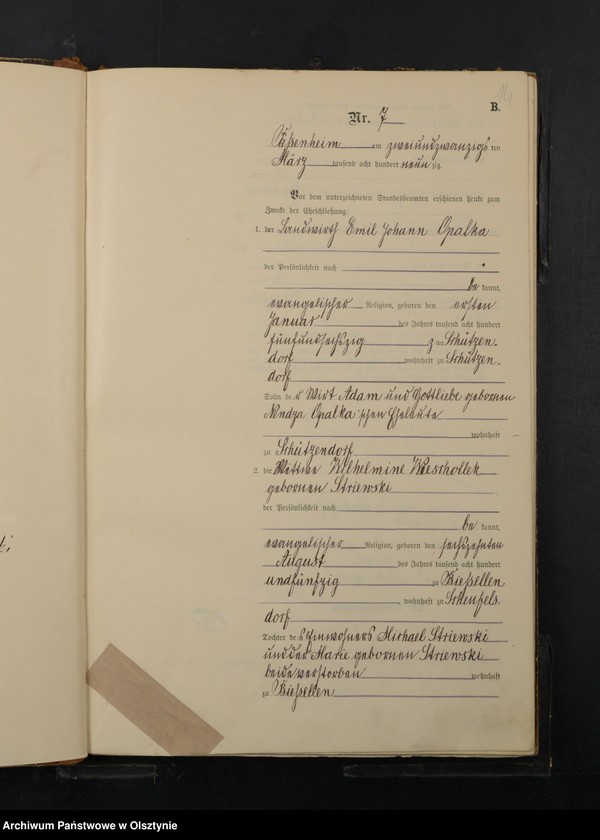 14
B.
Nr. 7
Pußenheim am zweiundzwanzigs ten
März tausend acht hundert neun zig.
Vor dem unterzeichneten Standesbeamten erschienen heute zum
Zwecke der Eheschließung:
1. der Landwirth Emil Johann Opalka
der Persönlichkeit nach
be kannt,
evangelischer Religion, geboren den ersten
Januar des Jahres tausend acht hundert
fünfundsechszig zu Schützen-
dorf, wohnhaft zu Schützen-
dorf
Sohn de r Wirt Adam und Gottliebe gebornen
Opalka'schen Eheleute
wohnhaft
zu Schützendorf
2. die Wittwe Wilhelmine
gebornen Striewski
der Persönlichkeit nach
be kannt,
evangelischer Religion, geboren den sechszehnten
August des Jahres tausend acht hundert
undfünfzig zu Bießellen
, wohnhaft zu
dorf
Tochter des Einwohners Michael Striewski
und der Marie gebornen Striewski
beide verstorben wohnhaft
zu Bießellen
Archiwum Państwowe w Olsztynie